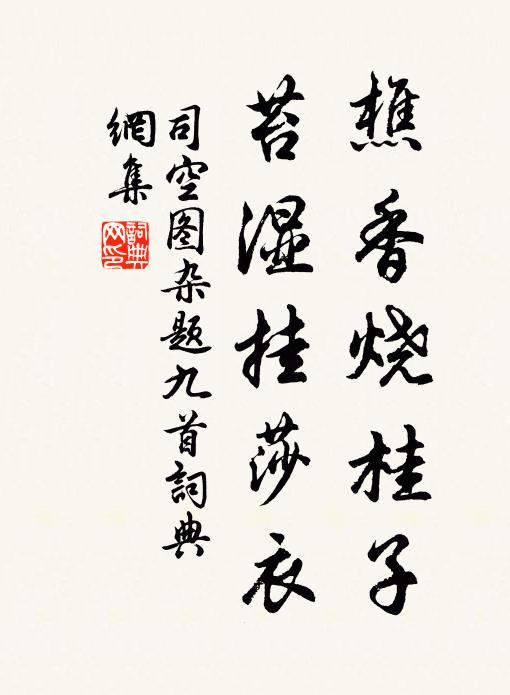 樵香烧桂子
苔湿挂莎衣
司空图杂题九首詞典
網集
詞典网印